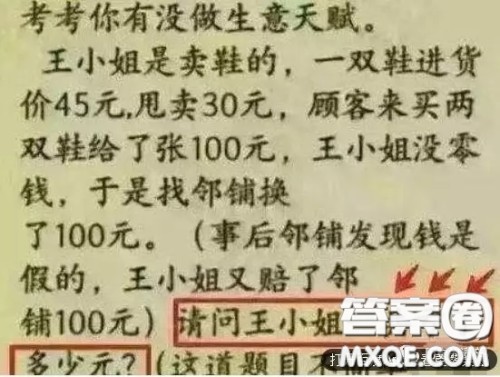 考考你有没做生意天赋。
王小姐是卖鞋的，一双鞋进货
价45元,甩卖30元，顾客来买两
双鞋给了张100元，王小姐没零
钱，于是找邻铺换
了100元。（事后邻铺发现钱是
假的，王小姐又赔了邻
铺100元）请问王小姐
多少元？（这道题目不
答案圈
MXQE.COM